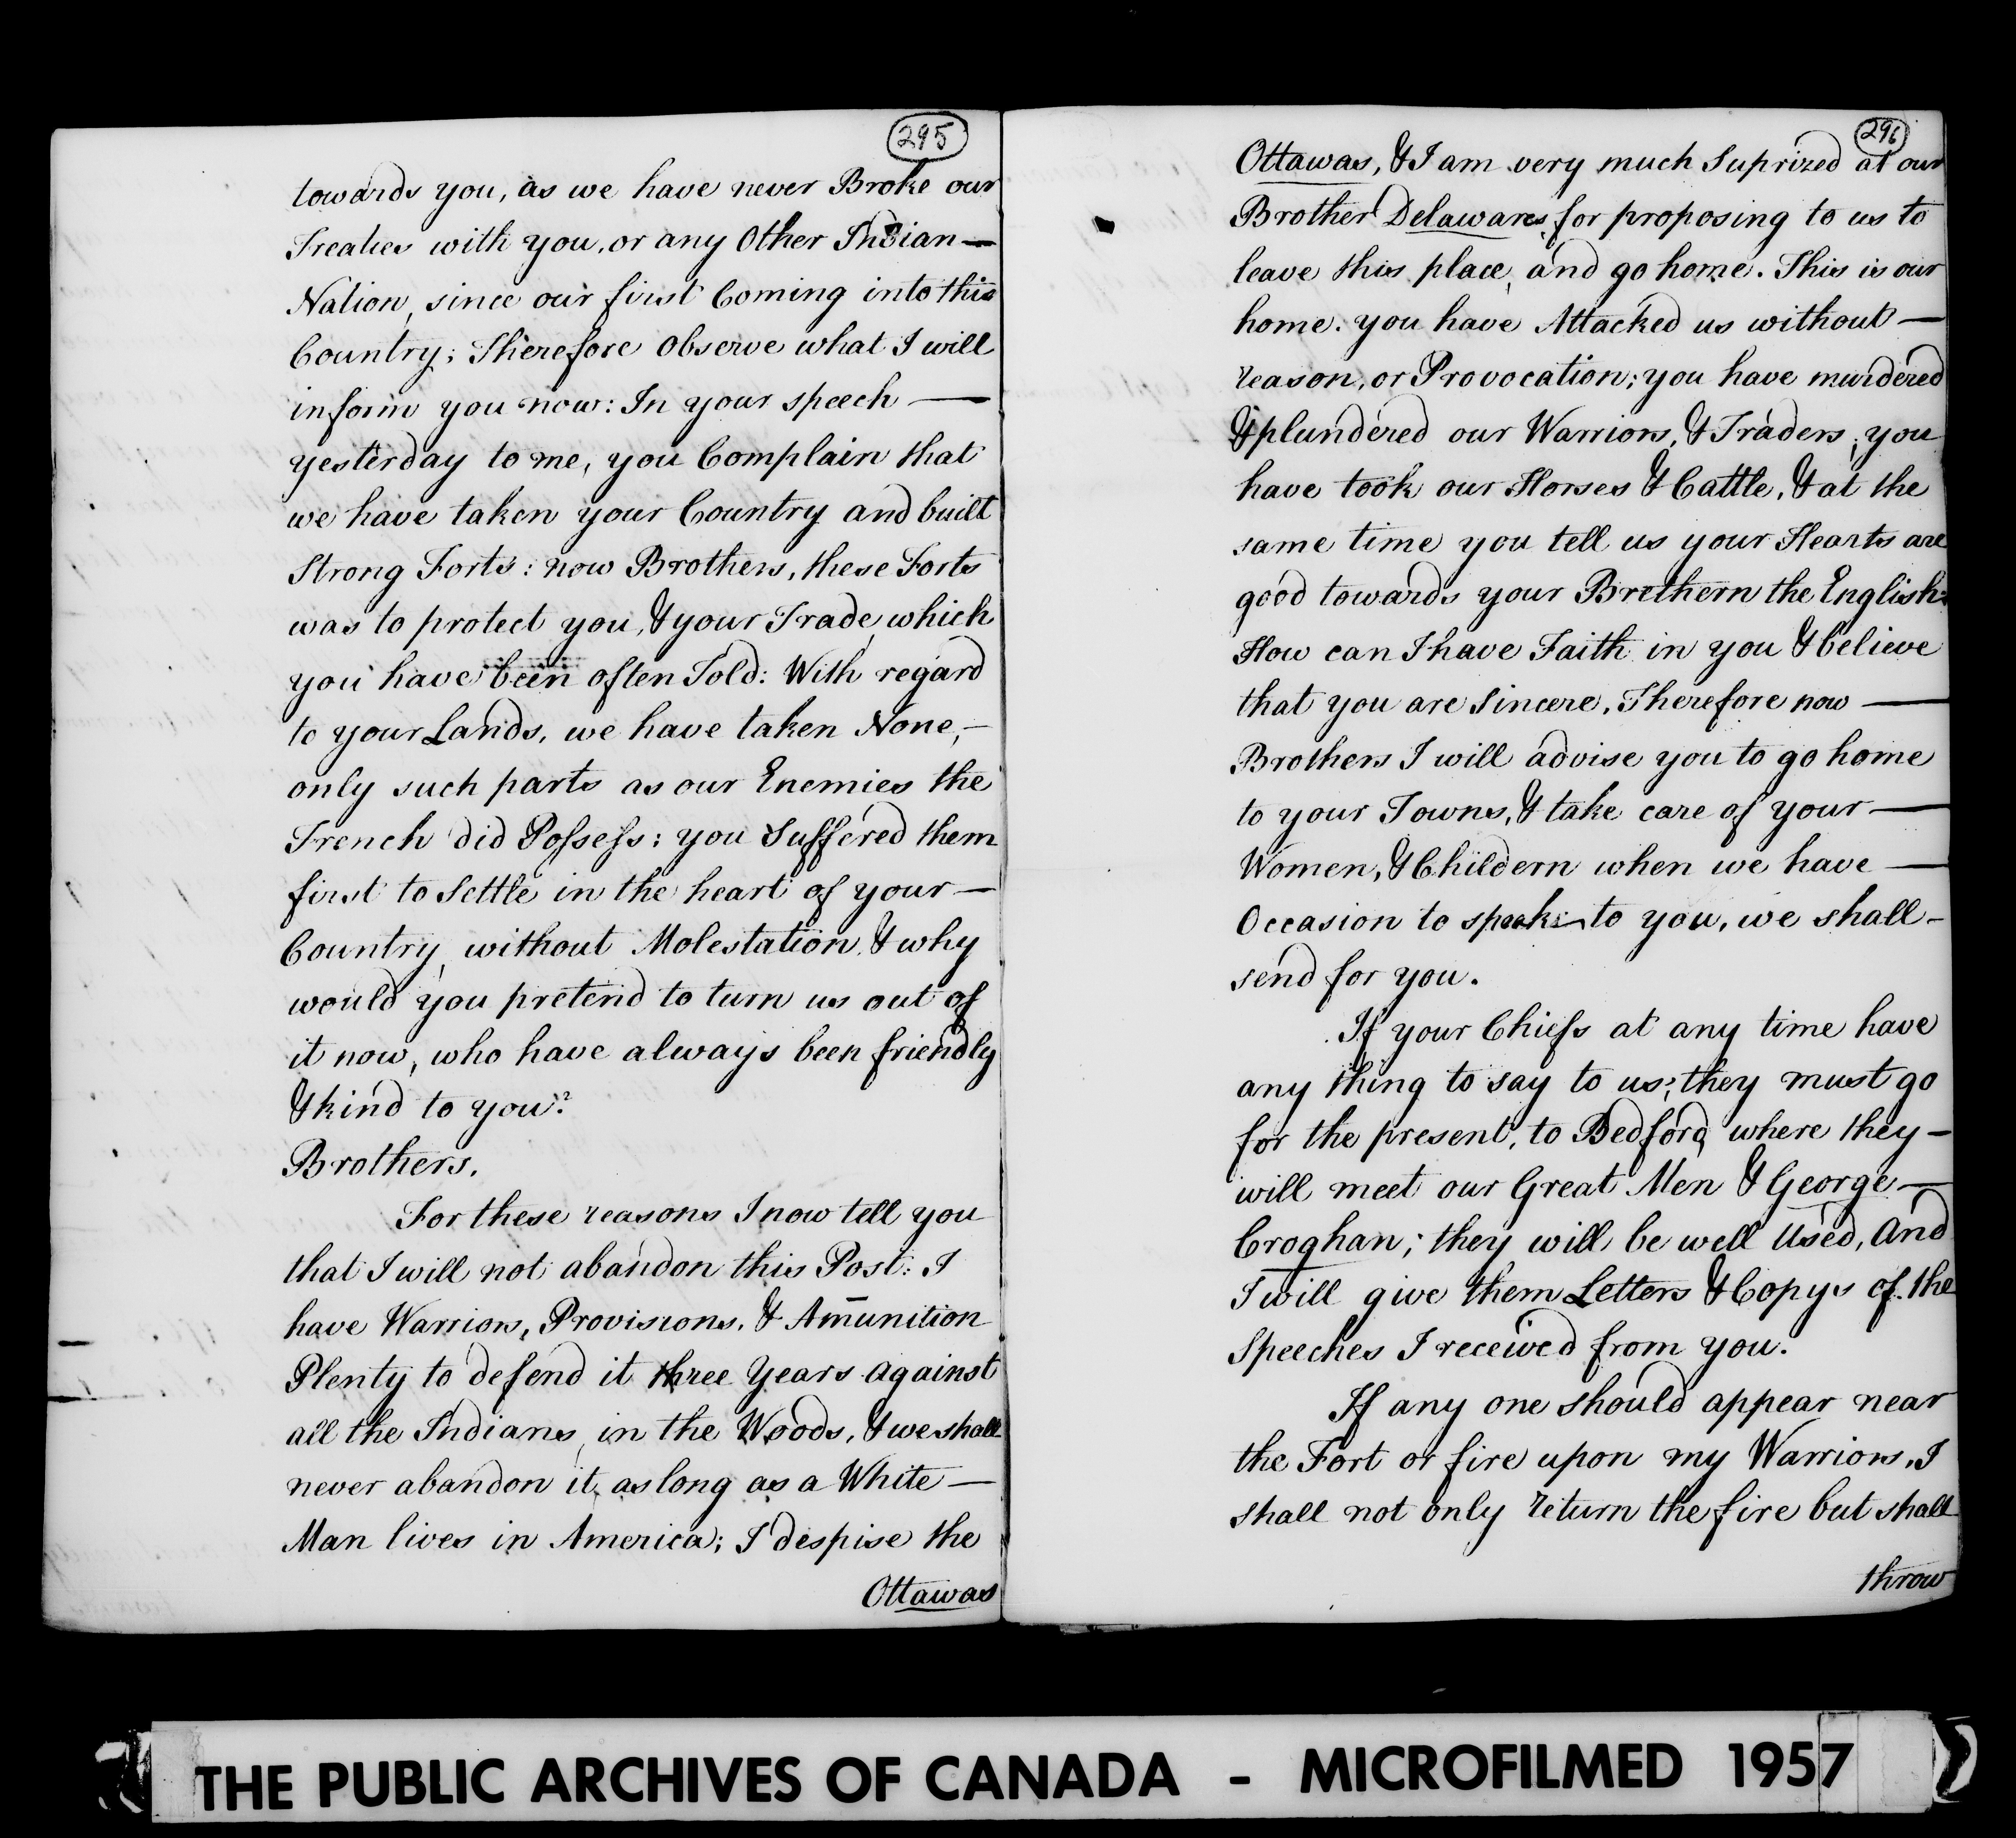 295
towards you, as we have never Broke our
Treaties with you, or any Other Indian —
Nation, since our first Coming into this
Country; Therefore Observe what I will
inform you now: In your speech —
yesterday to me, you Complain that
we have taken your Country and built
Strong Forts: now Brothers, these Forts
was to protect you, & your Trade, which
you have been often Told: With regard
to your Lands, we have taken None, —
only such parts as our Enemies the
French did Possess: you Suffered them
first to Settle in the heart of your —
Country, without Molestation, & why
would you pretend to turn us out of
it now, who have always been friendly
& kind to you?
Brothers,
For these reasons I now tell you
that I will not abandon this Post: I
have Warriors, Provisions, & Amunition
Plenty to defend it three Years against
all the Indians, in the Woods, & we shall
never abandon it, as long as a White —
Man lives in America; I despise the
Ottawas
296
Ottawas, & I am very much Suprized at our
Brother Delawares, for proposing to us to
leave this place, and go home. This is our
home. you have Attacked us without —
reason, or Provocation; you have murdered
& plundered our Warriors, & Traders; you
have took our Horses & Cattle, & at the
same time you tell us your Hearts are
good towards your Brethern the English:
How can I have Faith in you & believe
that you are Sincere. Therefore now —
Brothers I will advise you to go home
to your Towns, & take care of your —
Women, & Childern when we have —
Occasion to speak to you, we shall -
send for you.
If your Chiefs at any time have
any thing to say to us; they must go
for the present, to Bedford, where they -
will meet our Great Men & George —
Croghan; they will be well Used, And
I will give them Letters & Copys of the
Speeches I received from you.
If any one should appear near
the Fort or fire upon my Warriors, I
shall not only return the fire but shall
throw
THE PUBLIC ARCHIVES OF CANADA - MICROFILMED 1957